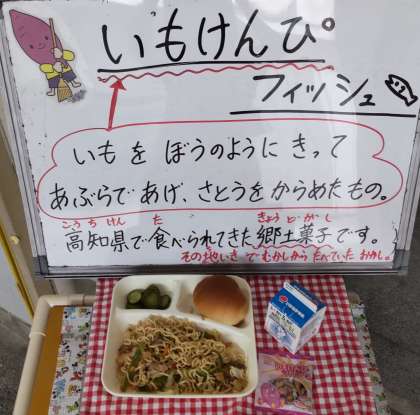 いもけんぴ
フィッシュ
いもをぼうのようにきって
あぶらであげ、さとうをからめたもの。
こうちけん た きょうどかし
高知県で食べられてきた郷土菓子です。
その地いきでむかしからたべていたおかし。